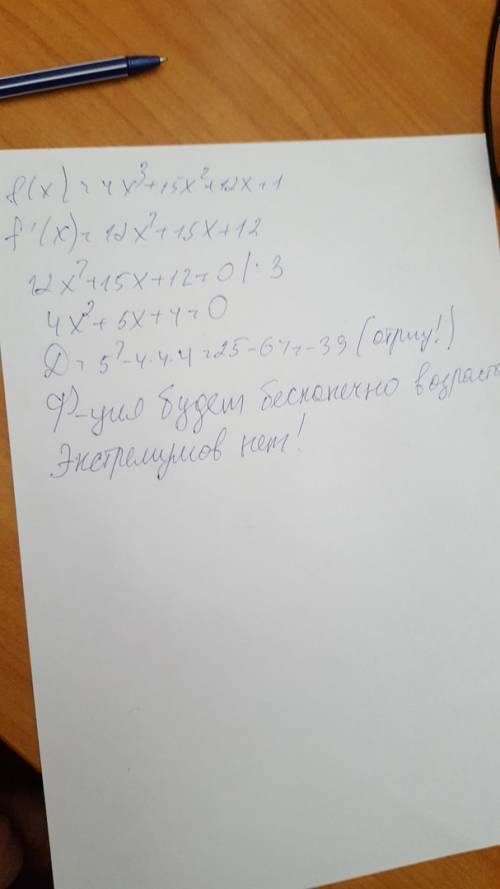 f(x) = 4x³+15x²+12x+1
f'(x) = 12x²+15x+12
12x²+15x+12=0 /:3
4x²+5x+4=0
Д = 5²-4·4·4=25-64=-39 (отриц!)
Ф-ция будет бесконечно возраст
Экстремумов нет!